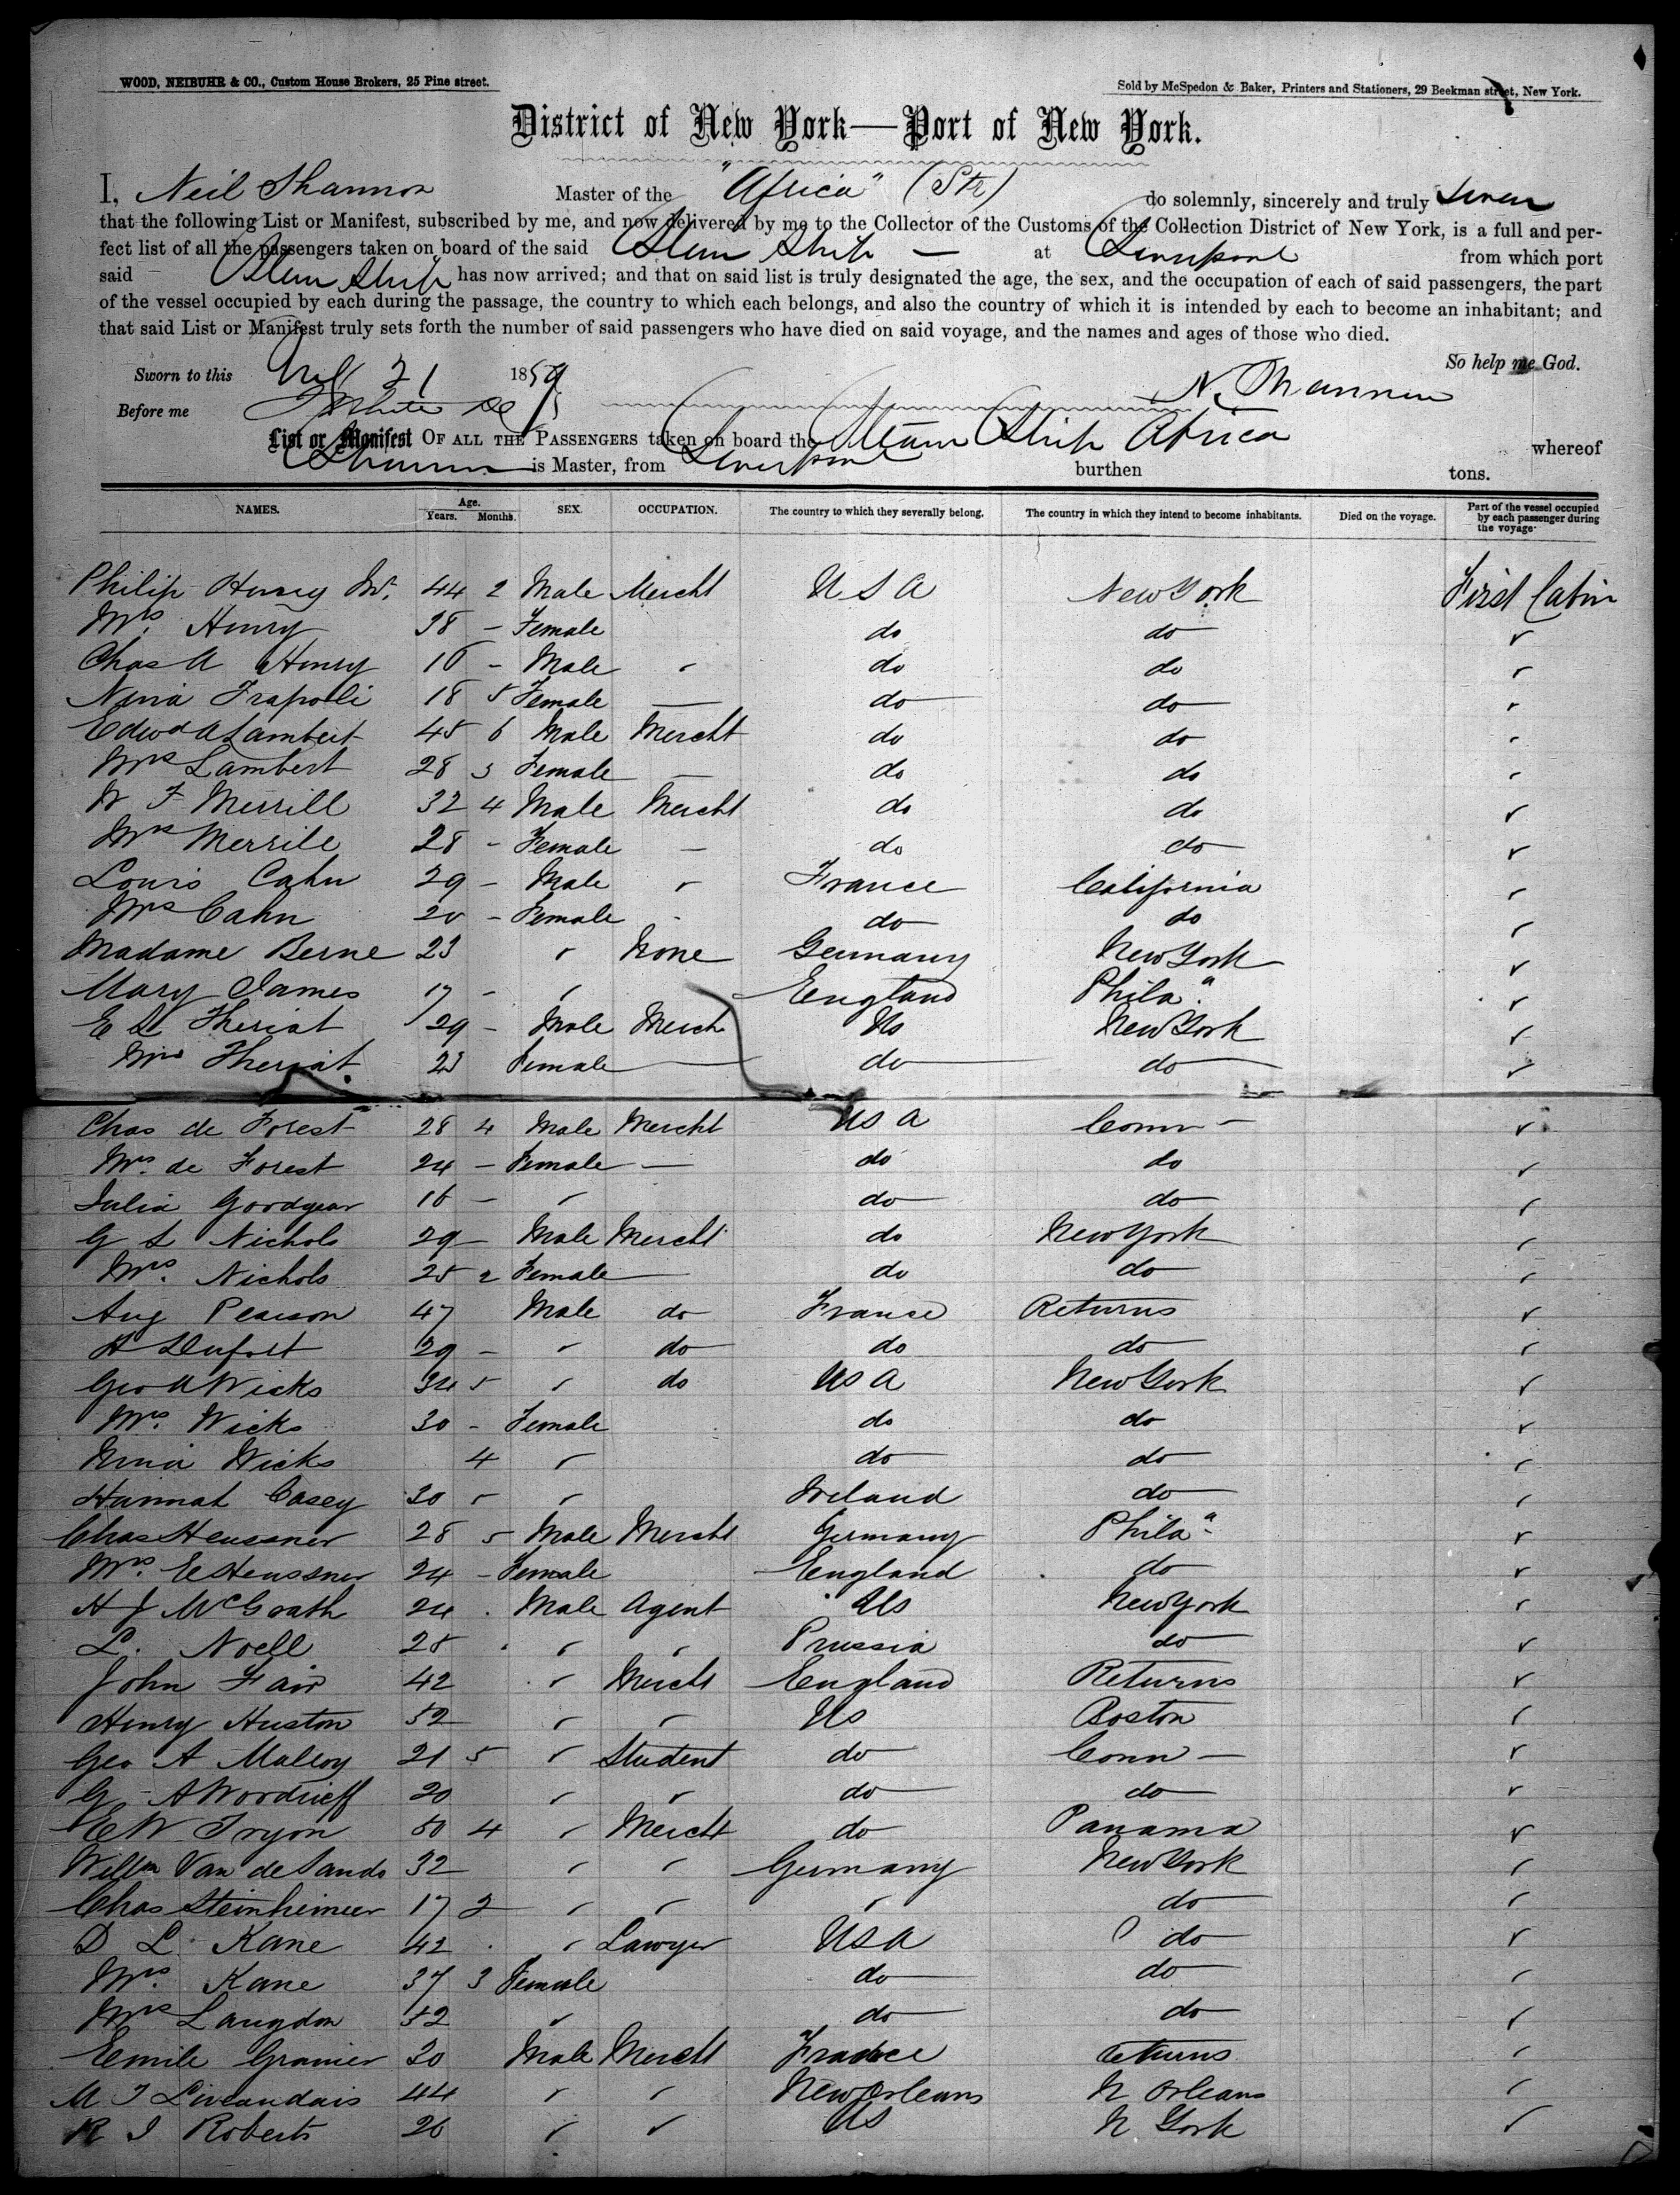 WOOD, NEIBUHR & CO., Custom House Brokers, 25 Pine street.
Sold by McSpedon & Baker, Printers and Stationers, 29 Beekman street, New York.
District of New York—Port of New York.
I, Neil Shannon Master of the "Africa" (Str) do solemnly, sincerely and truly swear
that the following List or Manifest, subscribed by me, and now delivered by me to the Collector of the Customs of the Collection District of New York, is a full and per-
fect list of all the passengers taken on board of the said Steam Ship — at Liverpool from which port
said Steam Ship has now arrived; and that on said list is truly designated the age, the sex, and the occupation of each of said passengers, the part
of the vessel occupied by each during the passage, the country to which each belongs, and also the country of which it is intended by each to become an inhabitant; and
that said List or Manifest truly sets forth the number of said passengers who have died on said voyage, and the names and ages of those who died.
So help me God.
Sworn to this 21 1859 N. Shannon
Before me
List or Manifest OF ALL THE PASSENGERS taken on board the Steam Ship Africa whereof
Shannon is Master, from Liverpool burthen tons.
NAMES. Age. Years. Months. SEX. OCCUPATION. The country to which they severally belong. The country in which they intend to become inhabitants. Died on the voyage. Part of the vessel occupied by each passenger during the voyage.
Philip Henry Jr. 44 2 Male Mercht U S A New York First Cabin
Mrs. Henry 38 – Female do do ✓
Chas A Henry 16 – Male ✓ do do ✓
Nina Trapolli 18 5 Female — do do ✓
Edwd A Lambert 45 6 Male Mercht do do ✓
Mrs Lambert 28 3 Female — do do ✓
W F Merrill 32 4 Male Mercht do do ✓
Mrs Merrill 28 – Female — do do ✓
Louis Cahn 29 – Male ✓ France California ✓
Mrs Cahn 20 – Female - do do ✓
Madame Berne 23 ✓ None Germany New York ✓
Mary James 17 – ✓ England Phila. ✓
E Theriat 29 – Male Merch Us New York ✓
Mrs Theriat. 23 Female — do do ✓
Chas de Forest 28 4 Male Mercht US A Conn – ✓
Mrs. de Forest 24 – Female — do do ✓
Julia Goodyear 16 – ✓ do do ✓
G S Nichols 29 – Male Mercht do New York ✓
Mrs. Nichols 25 2 Female — do do ✓
Aug Pearson 47 Male do France Returns ✓
A Dufort 29 – ✓ do do do ✓
Geo A Wicks 34 5 ✓ do US A New York ✓
Mrs. Wicks 30 – Female do do ✓
Nina Wicks 4 ✓ do do ✓
Hannah Casey 30 ✓ ✓ Ireland do ✓
Chas Heussner 28 5 Male Mercht Germany Phila ✓
Mrs. E Heussner 24 – Female England do ✓
H J McGrath 24 . Male Agent Us New York ✓
L. Noell 28 . ✓ ✓ Prussia do ✓
John Fair 42 ✓ Mercht England Returns ✓
Henry Huston 52 ✓ ✓ Us Boston ✓
Geo A Malloy 21 5 ✓ Student do Conn – ✓
G A Woodrieff 20 ✓ ✓ do do ✓
E W Tryon 50 4 ✓ Mercht do Panama ✓
Willm Van de Sands 32 ✓ ✓ Germany New York ✓
Chas Steinheimer 17 2 ✓ ✓ ✓ do ✓
D L. Kane 42 . ✓ Lawyer USA do ✓
Mrs. Kane 37 3 Female do do ✓
Mrs Langdon 52 ✓ do do ✓
Emile Granier 30 Male Mercht France eturns ✓
M J Liveaudais 44 ✓ ✓ New Orleans N Orleans ✓
R J Roberts 26 ✓ ✓ US N York ✓